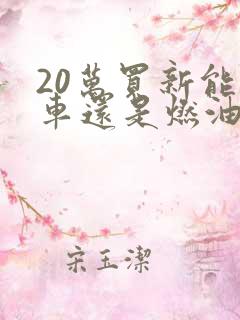 20萬買新能
車還是燃油
宋玉潔